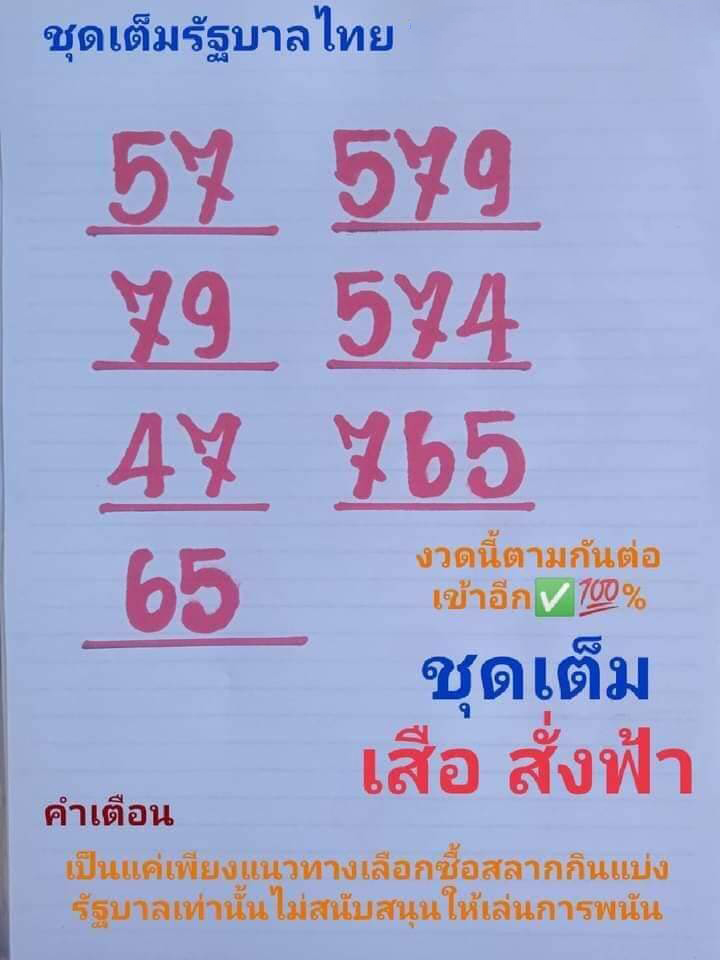 ชุดเต็มรัฐบาลไทย
57 579
79 574
47 765
65
งวดนี้ตามกันต่อ
เข้าอีก✅💯%
ชุดเต็ม
เสือ สั่งฟ้า
คำเตือน
เป็นแค่เพียงแนวทางเลือกซื้อสลากกินแบ่ง
รัฐบาลเท่านั้นไม่สนับสนุนให้เล่นการพนัน